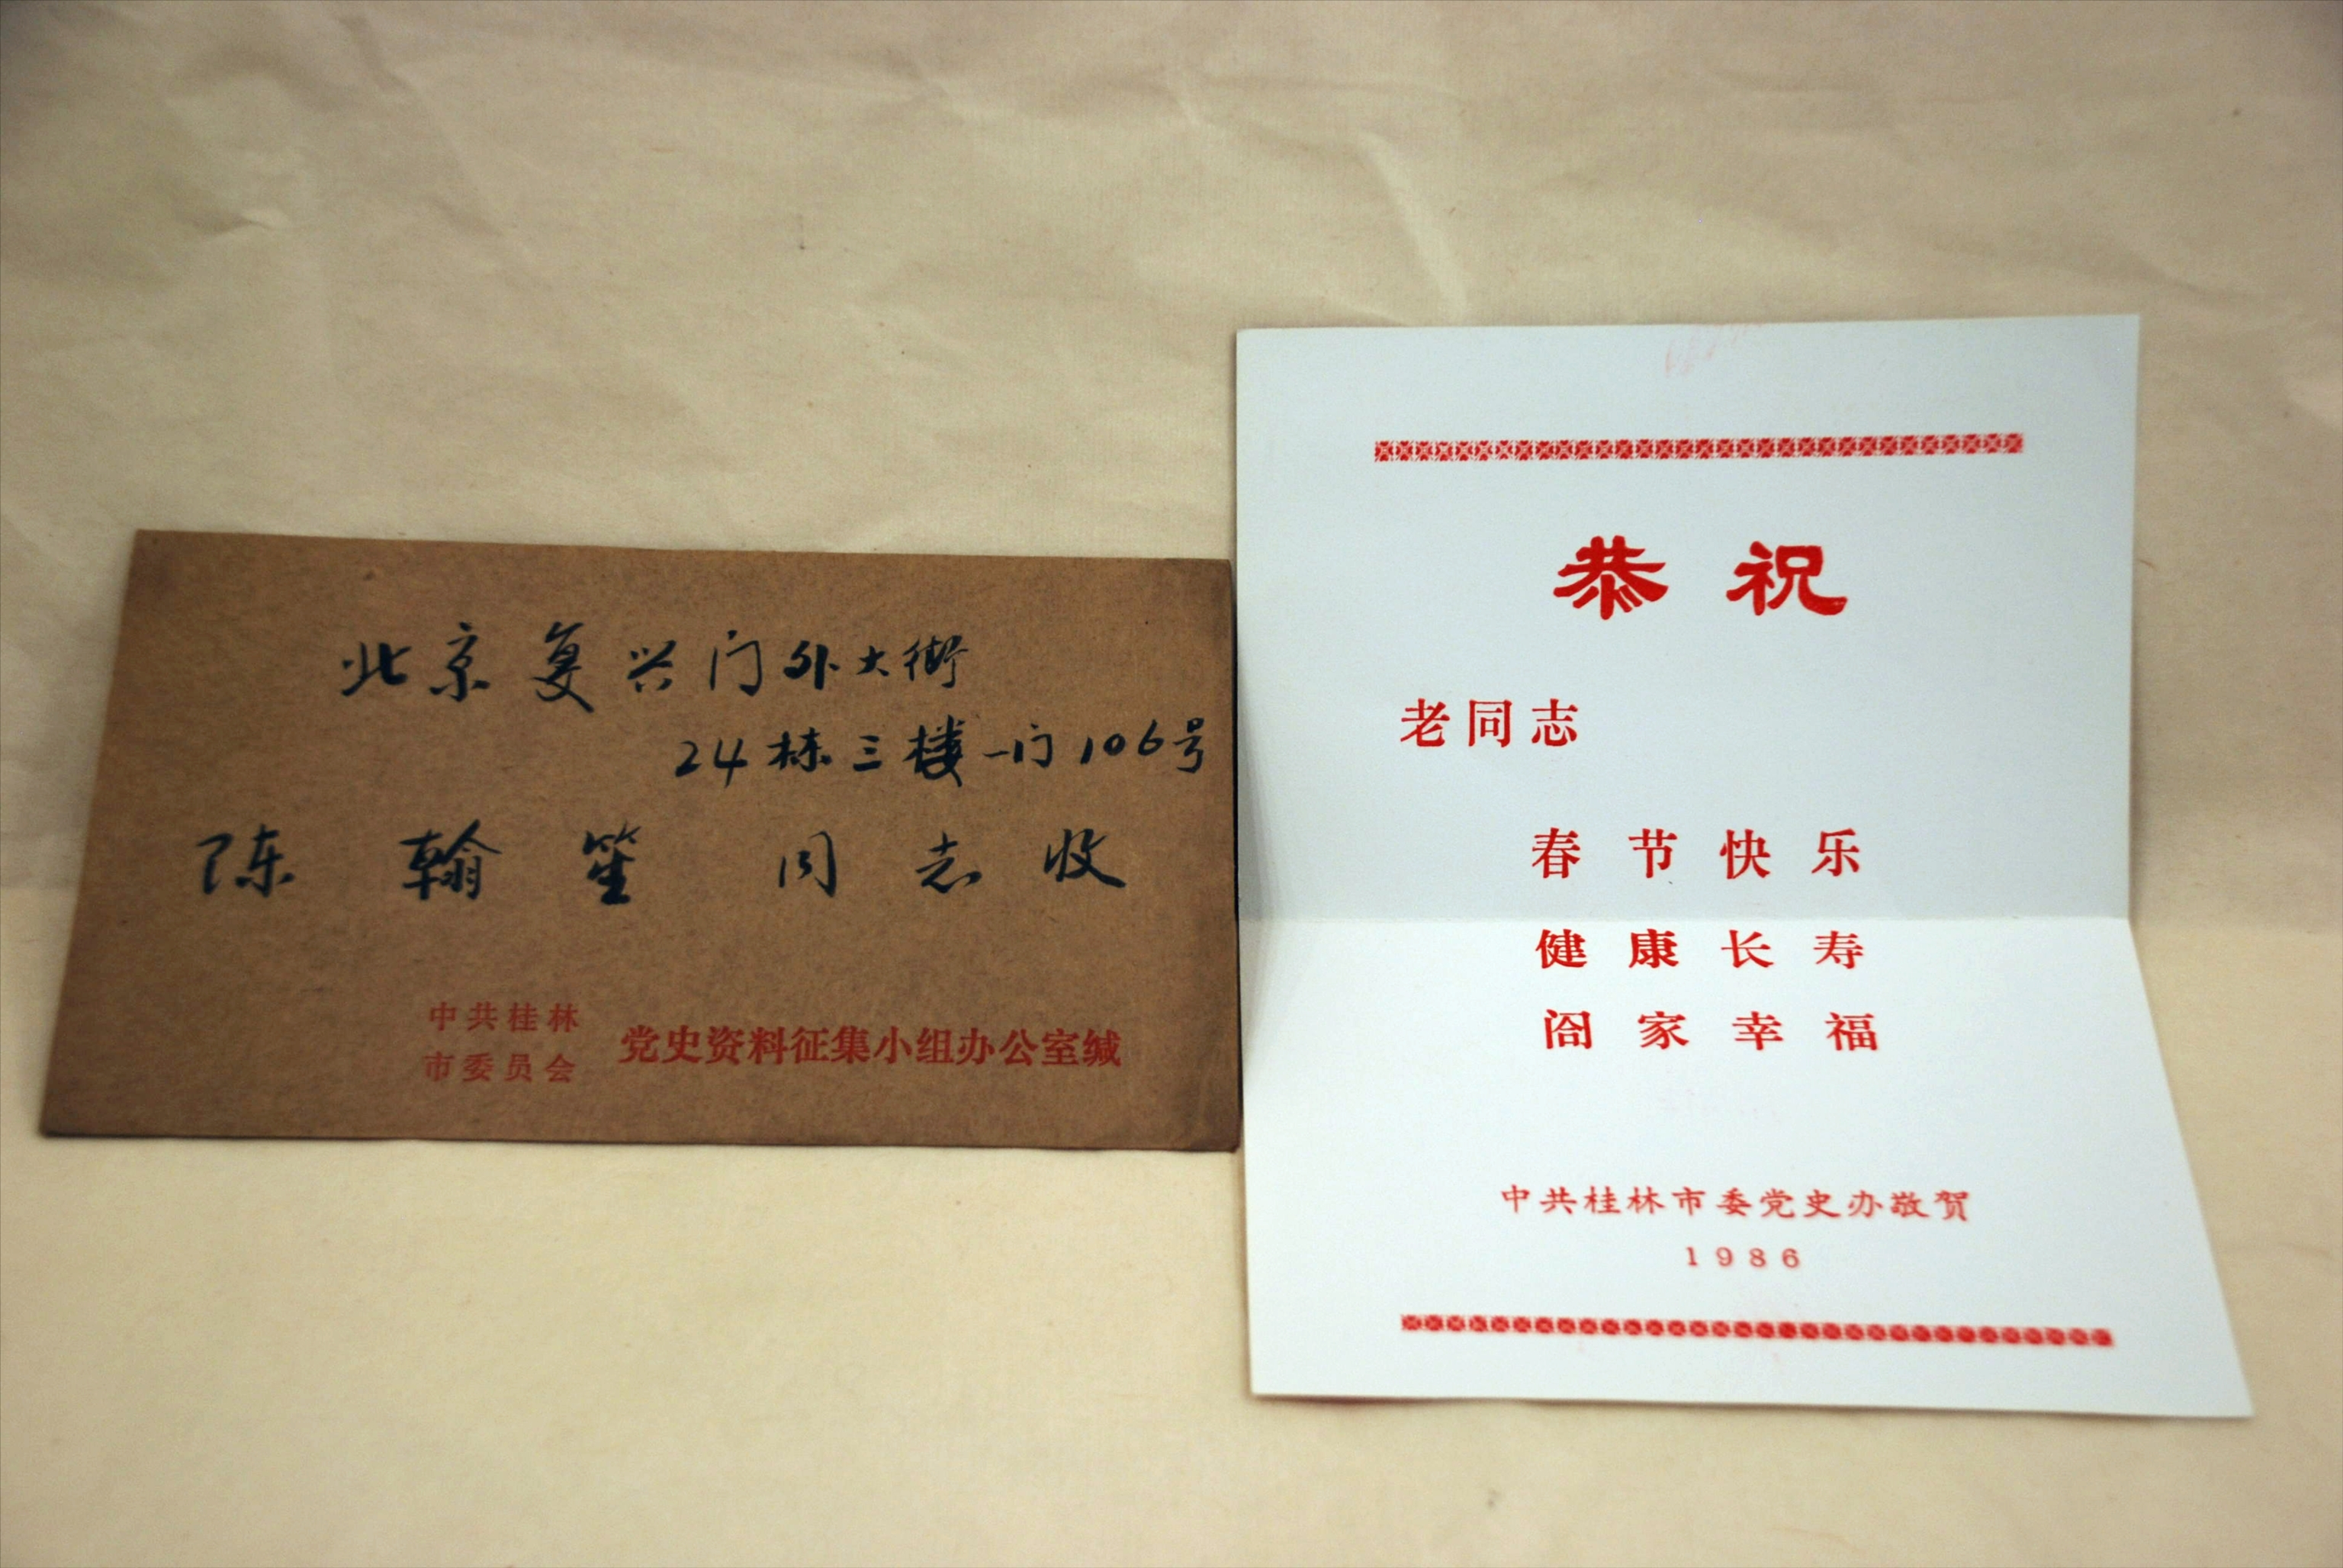 北京复兴门外大街
24栋三楼一门106号
陈翰笙 同志收
中共桂林
市委员会
党史资料征集小组办公室缄
恭祝
老同志
春节快乐
健康长寿
阖家幸福
中共桂林市委党史办敬贺
1986